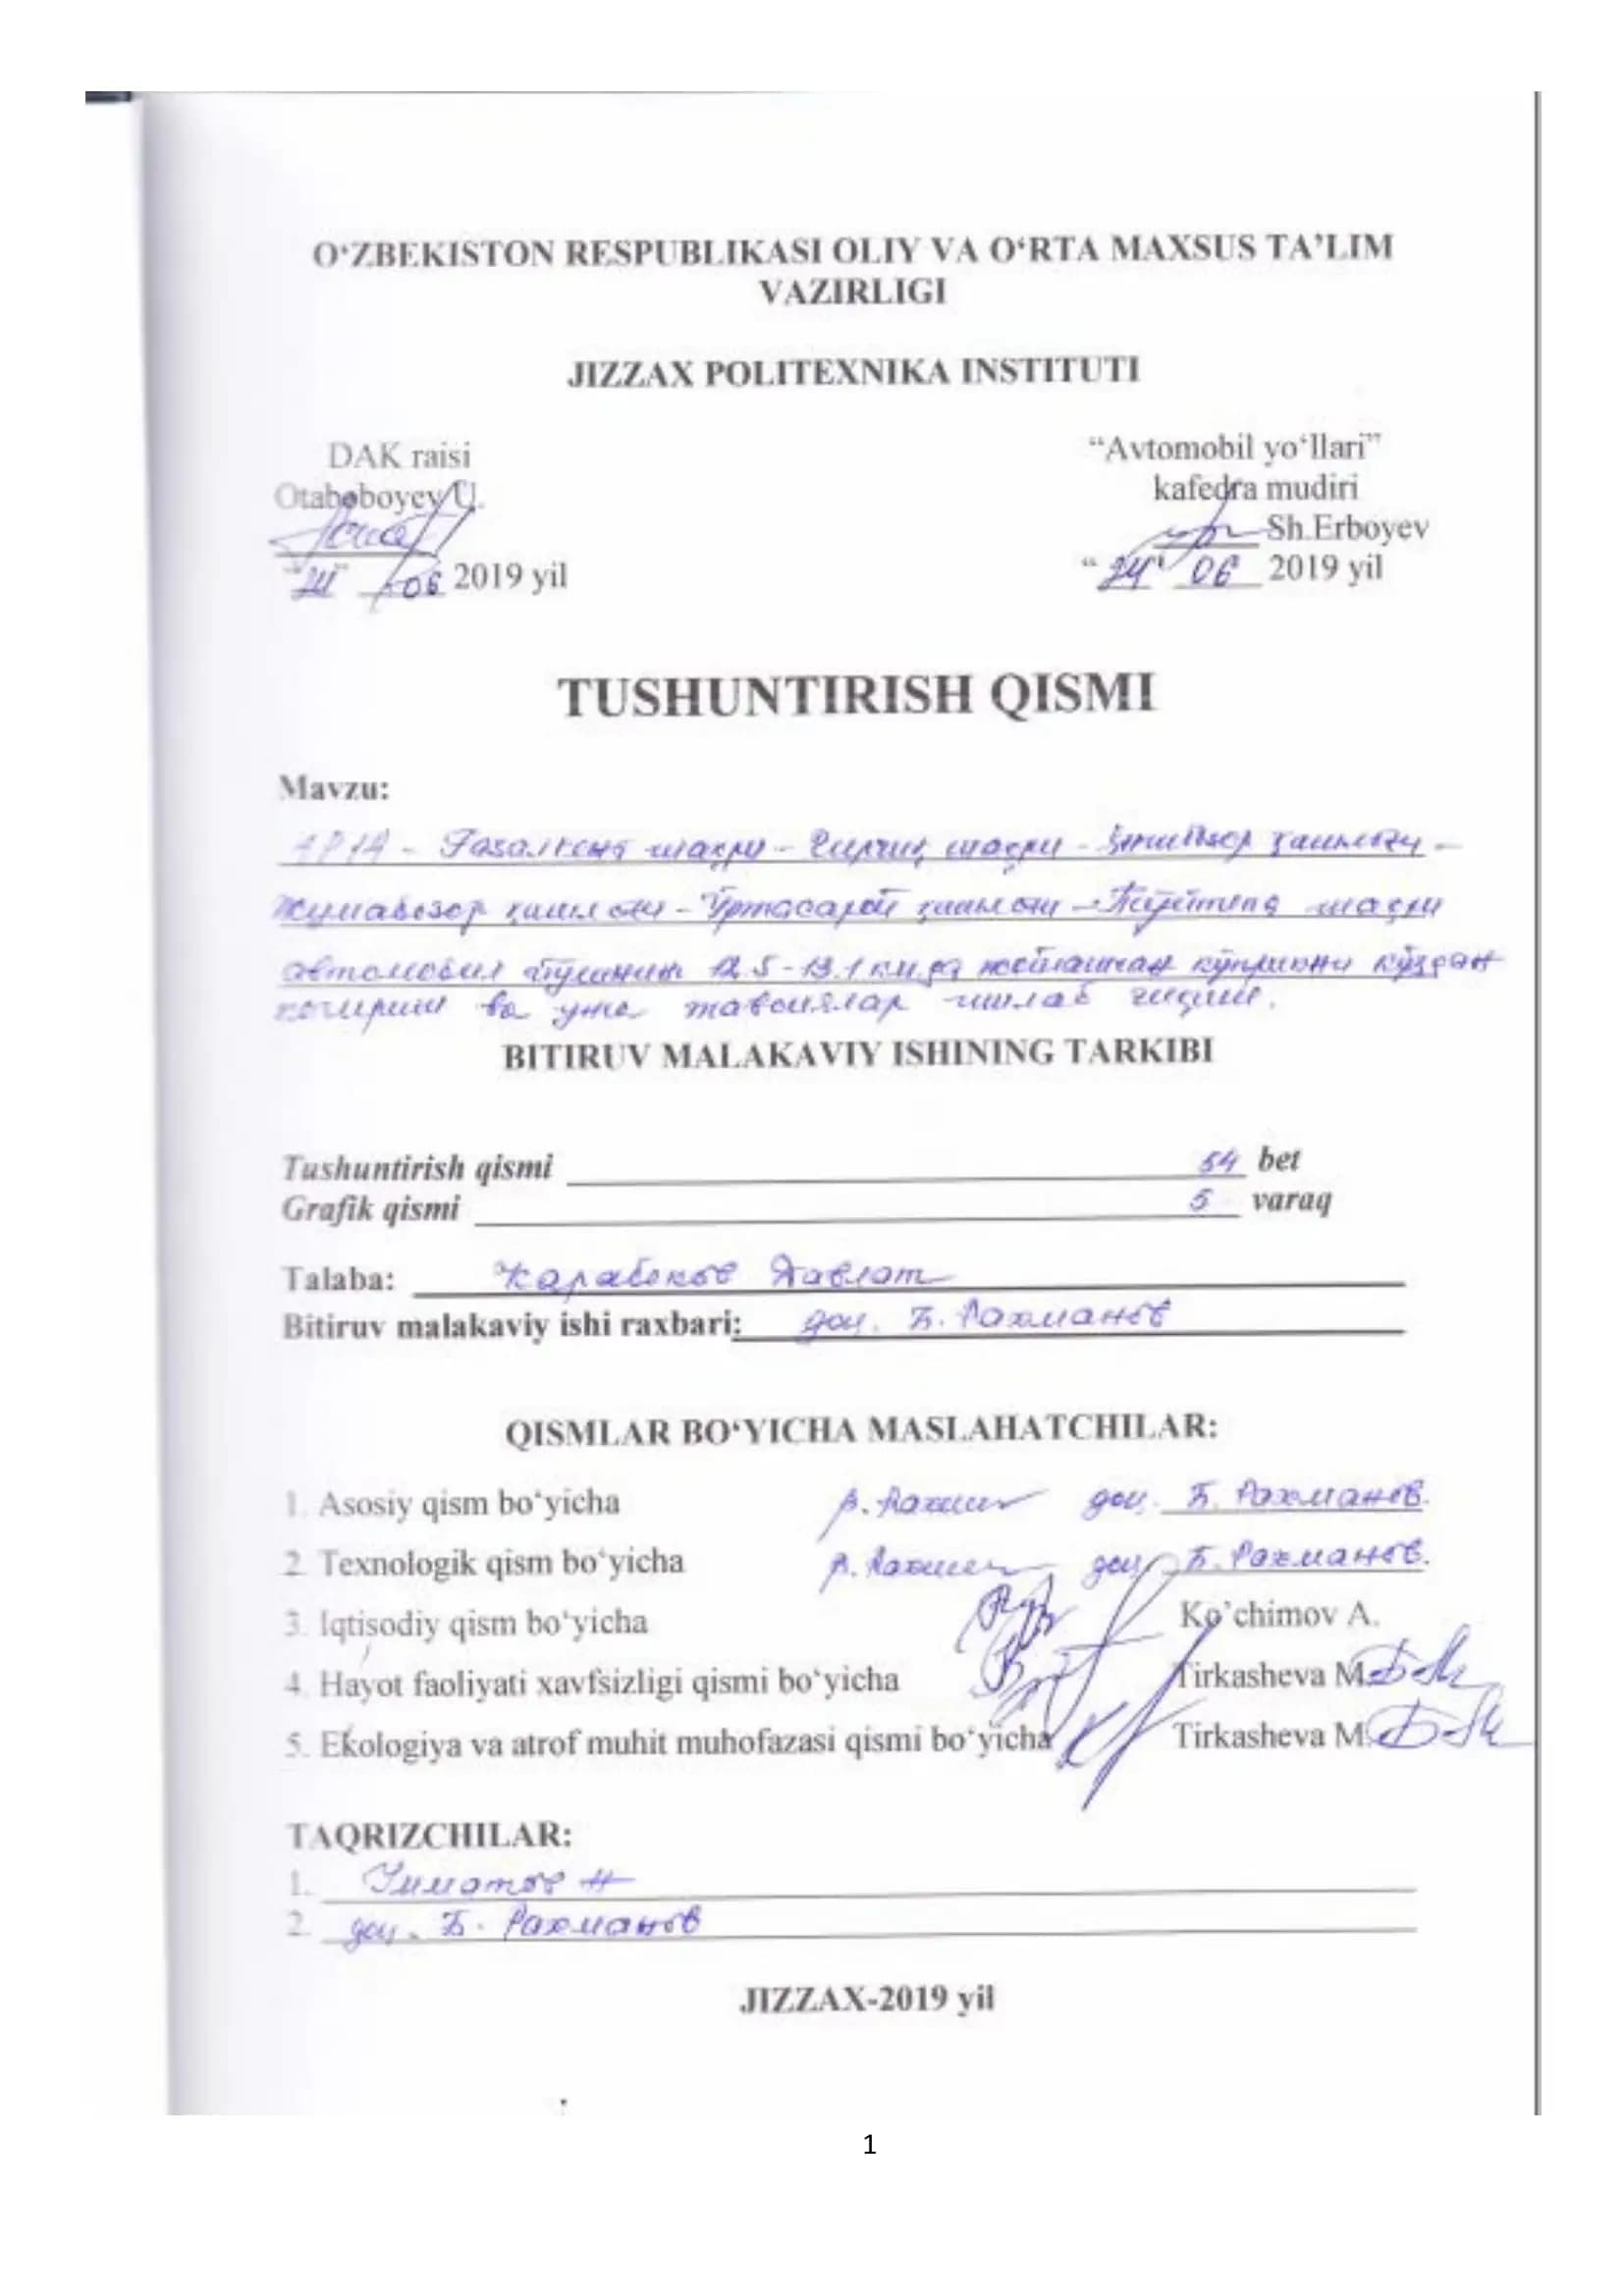 O‘ZBEKISTON RESPUBLIKASI OLIY VA O‘RTA MAXSUS TA’LIM
VAZIRLIGI
JIZZAX POLITEXNIKA INSTITUTI
DAK raisi
Otaboboyev U.
06 2019 yil
“Avtomobil yo‘llari”
kafedra mudiri
Sh.Erboyev
“24” 06 2019 yil
TUSHUNTIRISH QISMI
Mavzu:
Ғазалкент шаҳри - Чирчиқ шаҳри - қишлоғи -
Жумабозор қишлоғи - Ўртасарой қишлоғи - Тўйтепа шаҳри
автомобил йўлининг 12.5-13.1 км.да жойлашган кўприкни кўздан
кечириш ва унга тавсиялар ишлаб чиқиш.
BITIRUV MALAKAVIY ISHINING TARKIBI
Tushuntirish qismi 54 bet
Grafik qismi 5 varaq
Talaba: Карабеков Давлат
Bitiruv malakaviy ishi raxbari: доц. Б. Рахманов
QISMLAR BO‘YICHA MASLAHATCHILAR:
1. Asosiy qism bo‘yicha доц. Б. Рахманов.
2. Texnologik qism bo‘yicha доц. Б. Рахманов.
3. Iqtisodiy qism bo‘yicha Ko’chimov A.
4. Hayot faoliyati xavfsizligi qismi bo‘yicha Tirkasheva M.
5. Ekologiya va atrof muhit muhofazasi qismi bo‘yicha Tirkasheva M.
TAQRIZCHILAR:
1.
2. доц. Б. Рахманов
JIZZAX-2019 yil
1